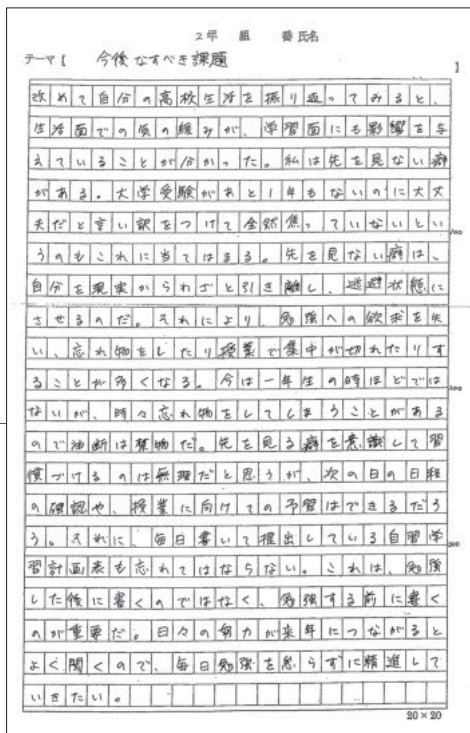 2年 組 番 氏名
テーマ【 今後なすべき課題 】
改めて自分の高校生活を振り返ってみると、
生活面での気の緩みが、学習面にも影響を与
えていることが分かった。私は先を見ない癖
がある。大学受験があと1年もないのに大丈
夫だと言い訳をつけて全然焦っていないとい
うのもこれに当てはまる。先を見ない癖は、
自分を現実からわざと引き離し、逃避状態に
させるのだ。それにより、勉強への欲求を失
い、忘れ物をしたり授業で集中が切れたりす
ることが多くなる。今は一年生の時ほどでは
ないが、時々忘れ物をしてしまうことがある
ので油断は禁物だ。先を見る癖を意識して習
慣づけるのは無理だと思うが、次の日の日程
の確認や、授業に向けての予習はできるだろ
う。それに、毎日書いて提出している自習学
習計画表も忘れてはならない。これは、勉強
した後に書くのではなく、勉強する前に書く
のが重要だ。日々の努力が来年につながると
よく聞くので、毎日勉強を怠らずに精進して
いきたい。
20×20